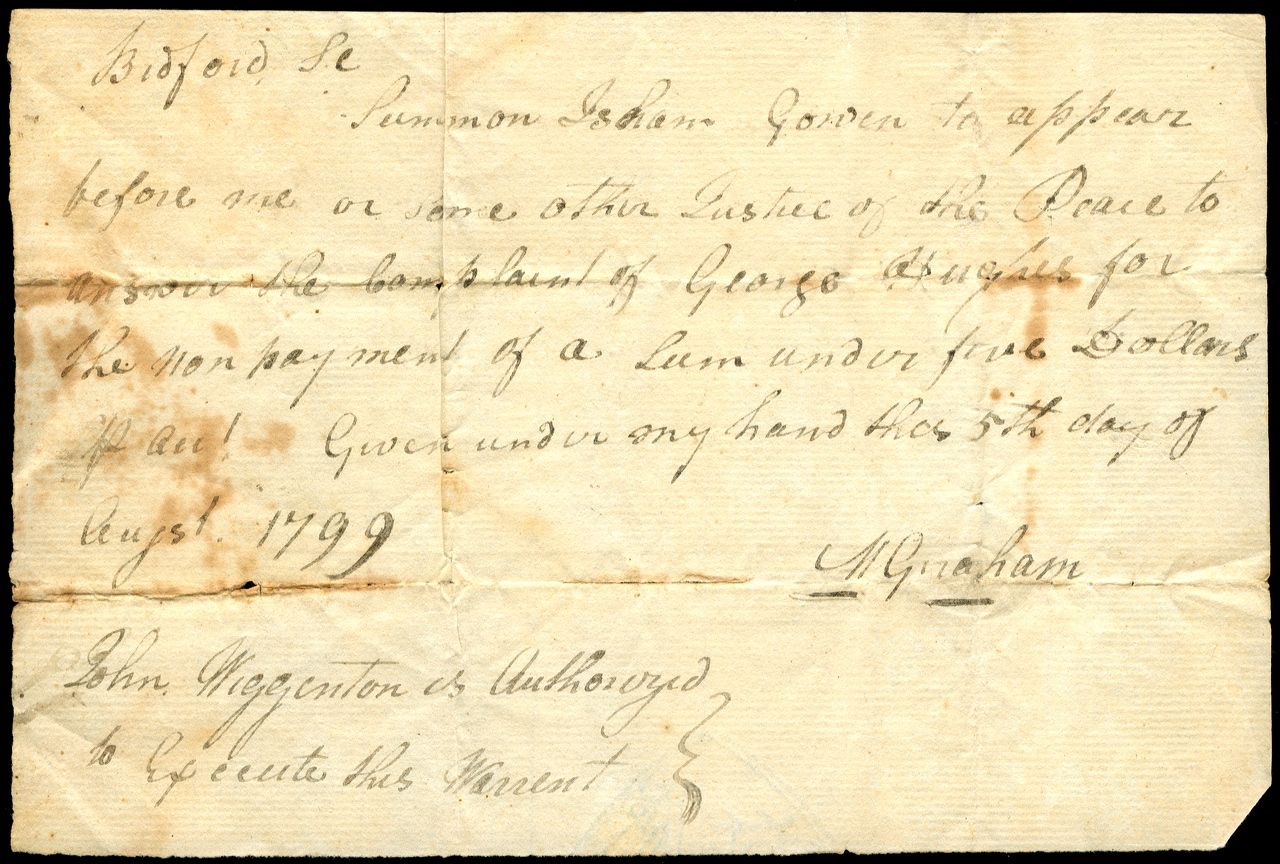 Bedford, Sc
Summon Isham Gowen to appear
before me or some other Justice of the Peace to
answer the Complaint of George Hughes for
the non payment of a Sum under five Dollars
Given under my hand this 5th day of
Augst. 1799
M Graham
John Wiggenton is Authoryed
to Execute this Warrent